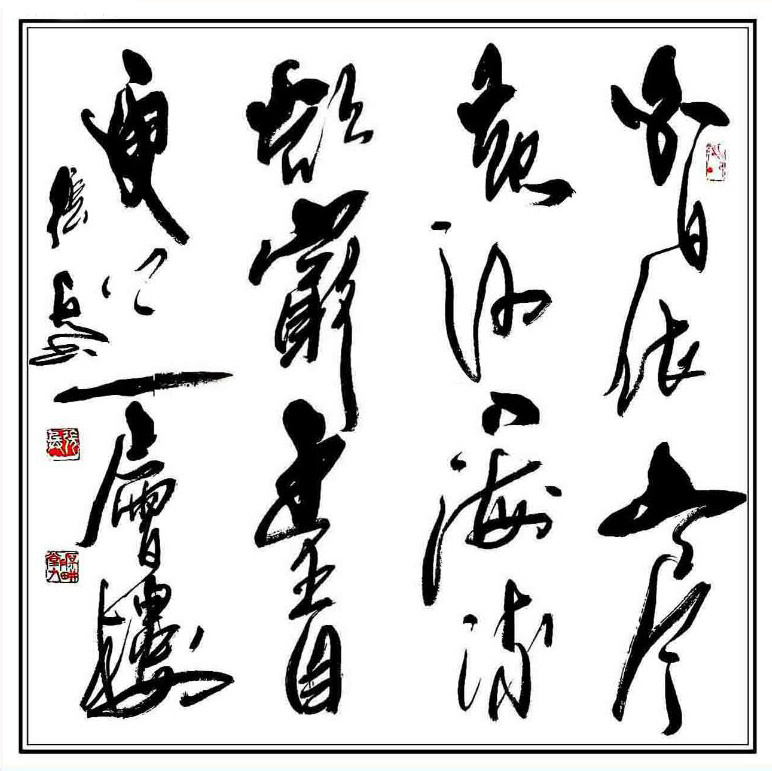 白日依山尽
黄河入海流
欲窮千里目
更上一層樓
張